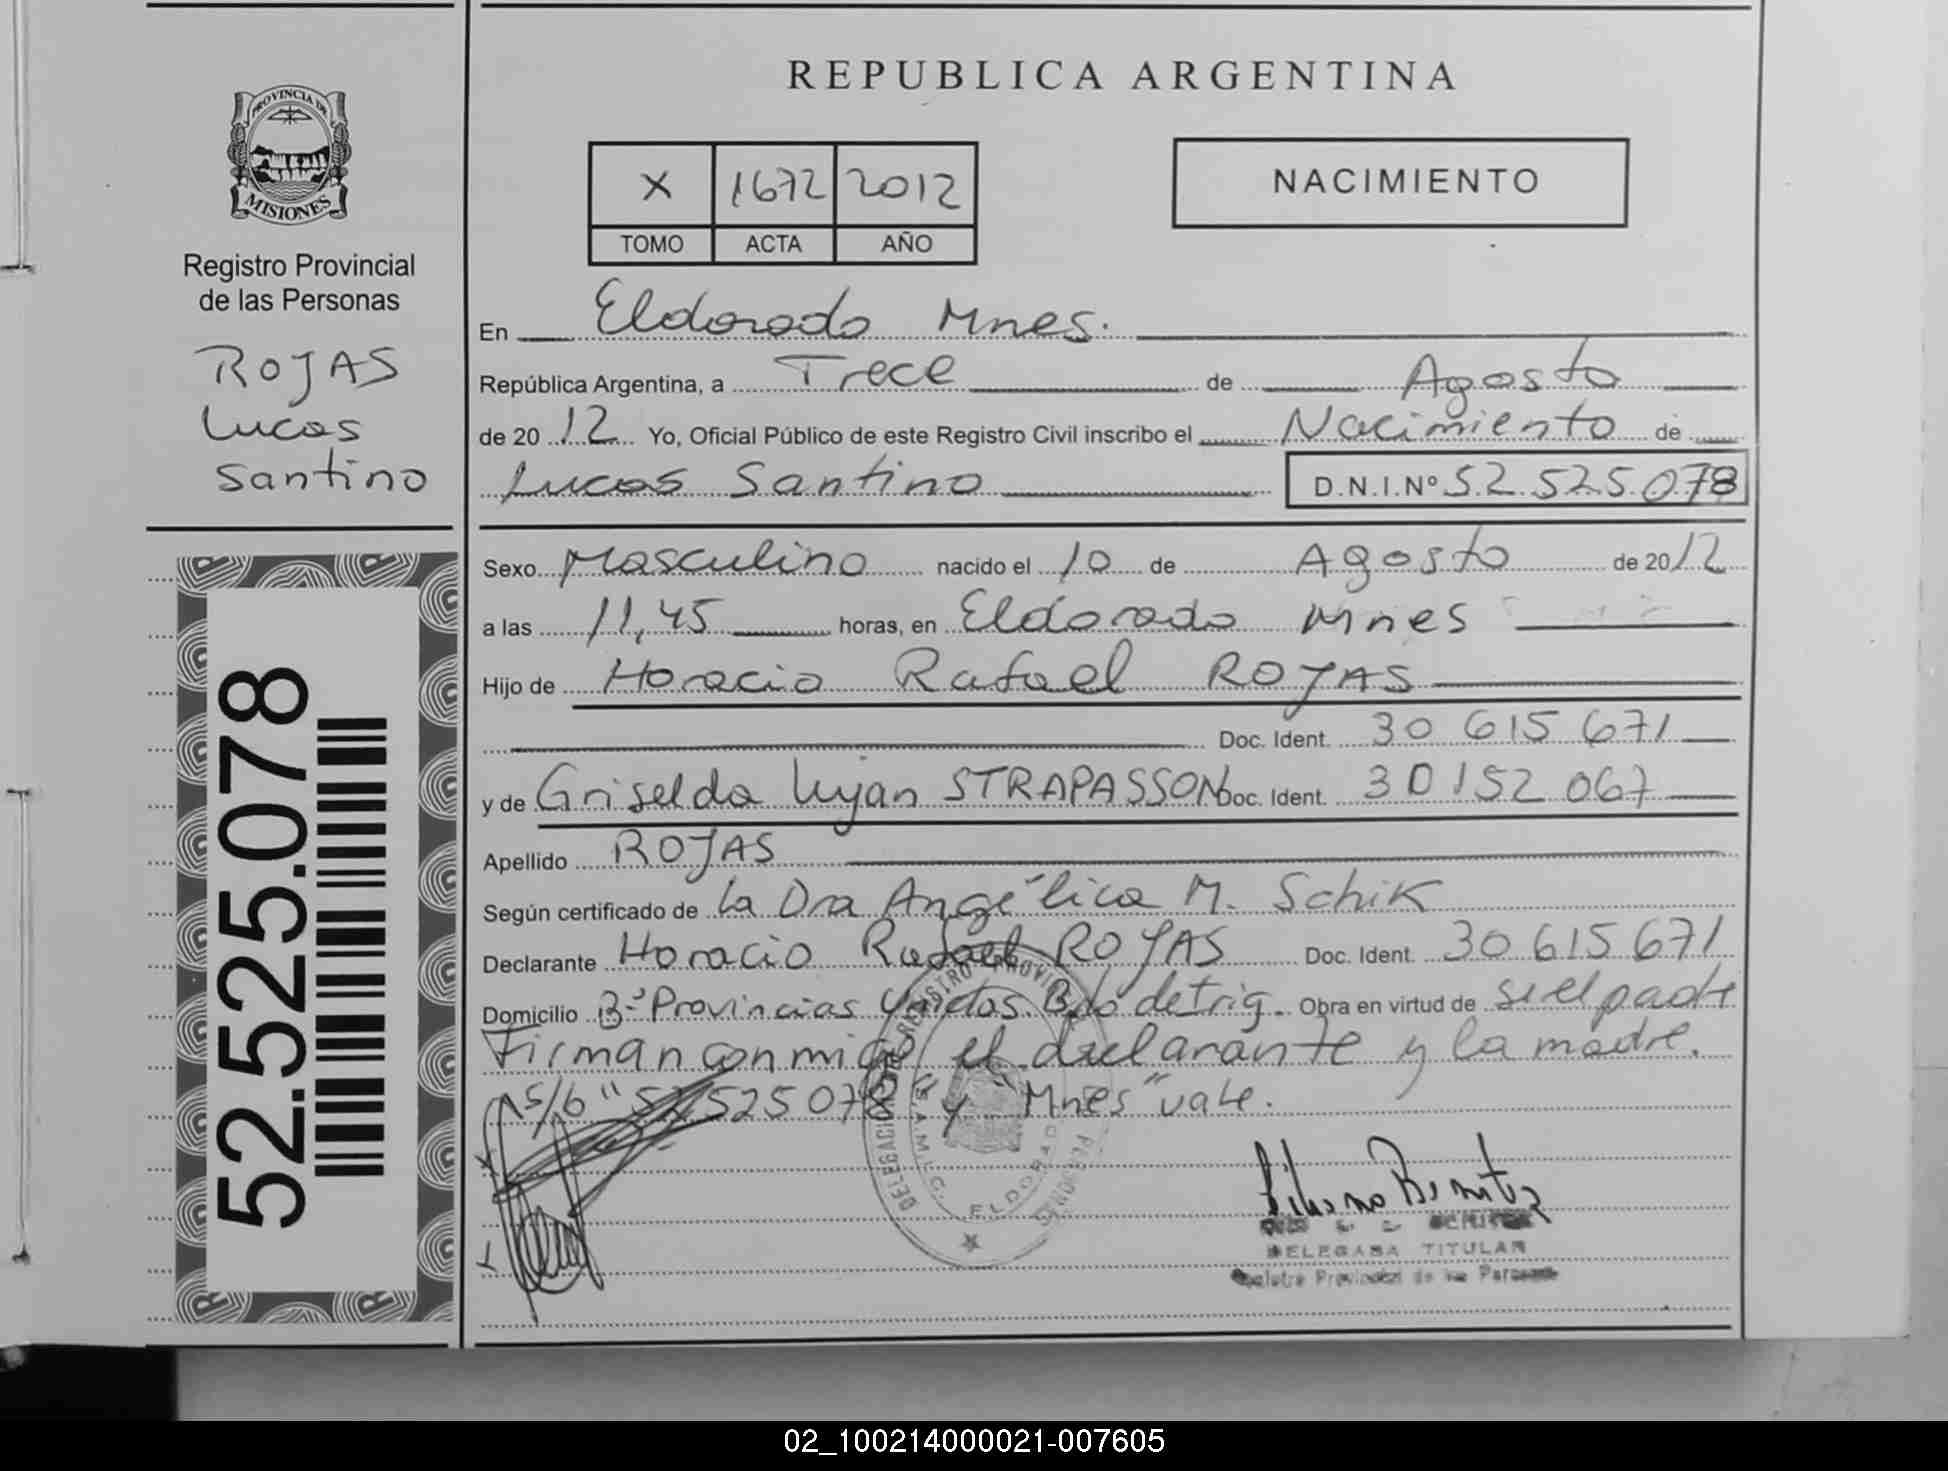 REPUBLICA ARGENTINA
PROVINCIA DE
MISIONES
Registro Provincial
de las Personas
ROJAS
Lucas
Santino
52.525.078
X 1672 2012
TOMO ACTA AÑO
NACIMIENTO
En Eldorado Mnes.
República Argentina, a Trece de Agosto
de 2012 Yo, Oficial Público de este Registro Civil inscribo el Nacimiento de
Lucas Santino D.N.I.Nº 52.525.078
Sexo Masculino nacido el 10 de Agosto de 2012
a las 11,45 horas, en Eldorado Mnes
Hijo de Horacio Rafael ROJAS
Doc. Ident. 30 615 671
y de Griselda Lujan STRAPASSON Doc. Ident. 30 152 067
Apellido ROJAS
Según certificado de La Dra Angélica M. Schik
Declarante Horacio Rafael ROJAS Doc. Ident. 30 615 671
Domicilio Bº Provincias Unidas. Bdo de Irig. Obra en virtud de ser el padre
Firman conmigo el declarante y la madre.
S/b "52525078" y "Mnes" vale.
DELEGACION REGISTRO PROVINCIAL PERSONAS
ELDORADO
DELEGADA TITULAR
Registro Provincial de las Personas
02_100214000021-007605